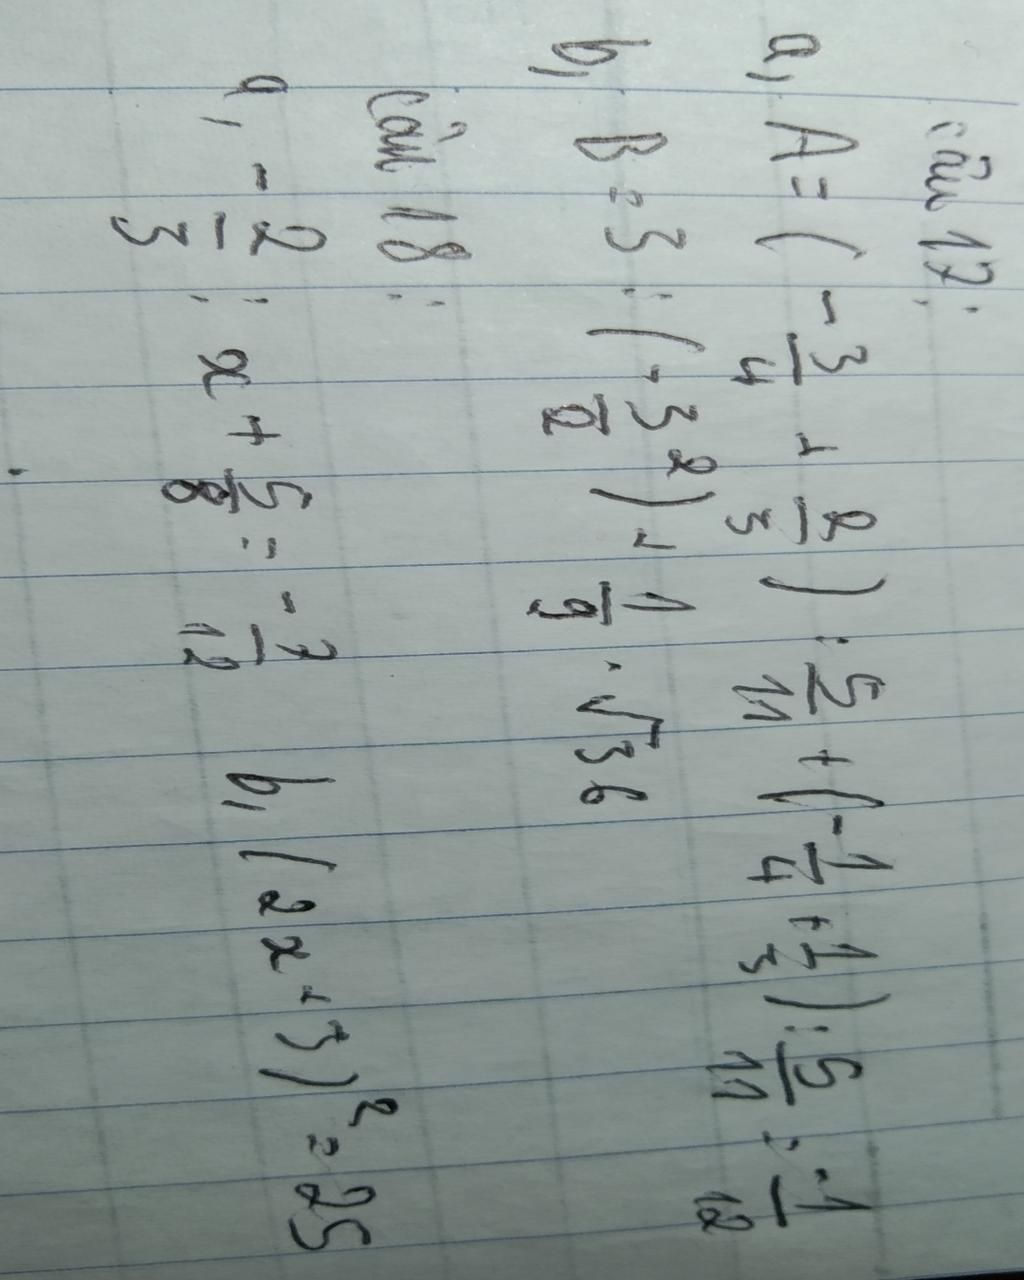 câu 17:
a, A = ( -3/4 + 2/3 ) : 5/11 + ( -1/4 + 1/3 ) : 5/11 : -1/12
b, B = 3 : ( -3/2 )² + 1/9 . √36
câu 18 :
a, -2/3 : x + 5/8 = -7/12 b, ( 2x + 3 )² = 25